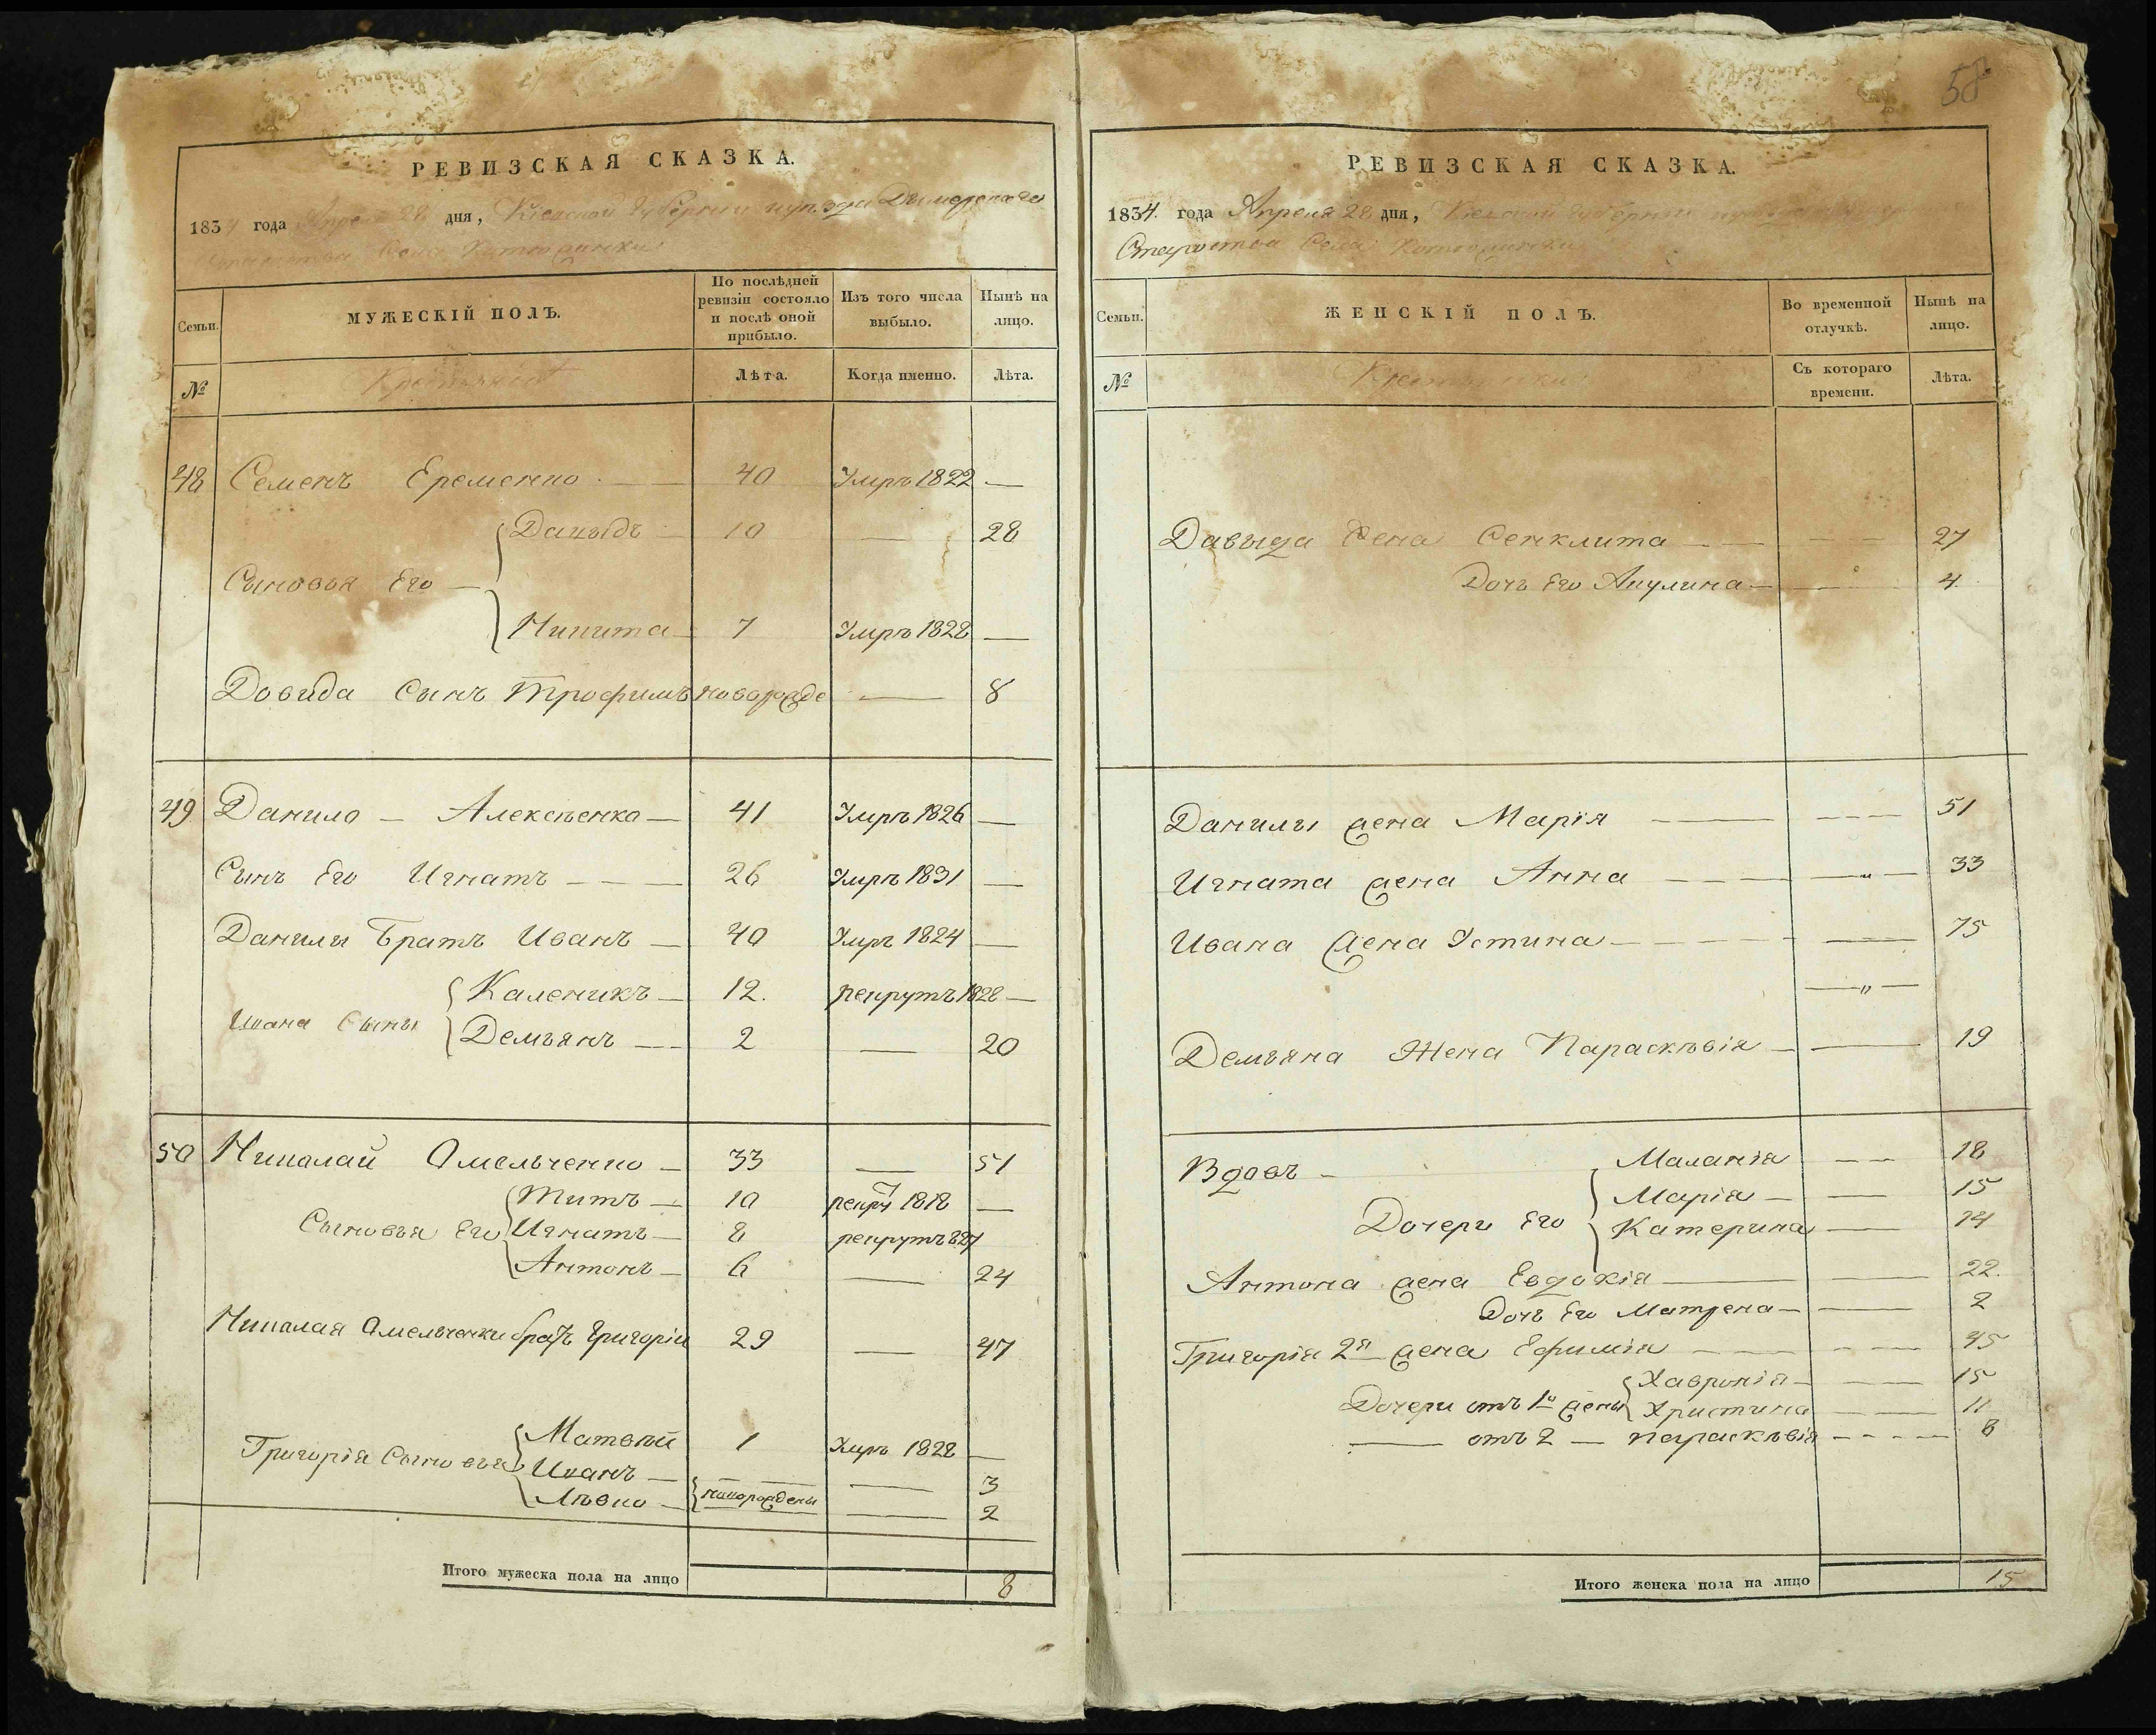 58
РЕВИЗСКАЯ СКАЗКА.
1834 года Апреля 28 дня, Кіевской Губерніи и уѣзда Дымерскаго
Староства Села
Семьи.
МУЖЕСКІЙ ПОЛЪ.
По послѣдней ревизіи состояло и послѣ оной прибыло.
Изъ того числа выбыло.
Нынѣ на лицо.
№
Лѣта.
Когда именно.
Лѣта.
48 Семенъ Еременко — 40 Умръ 1822 —
Давыдъ — 10 — 28
Сыновья Его —
Никита — 7 Умръ 1828 —
Довида Сынъ Трофимъ новорожде — 8
49 Данило — Алексѣенко — 41 Умръ 1826 —
Сынъ Его Игнатъ — — — 26 Умръ 1831 —
Данилы Братъ Иванъ — 40 Умръ 1824 —
Каленикъ — 12. рекрутъ 1828 —
Ивана Сыны
Демьянъ — — 2 — 20
50 Николай Омельченко — 33 — 51
Титъ — 10 рекру 1818 —
Сыновья Его Игнатъ — 8 рекрутъ 827
Антонъ — 6 — 24
Николая Омельченки братъ Григорій 29 — 47
Матвѣй 1 Умръ 1828 —
Григорія Сыновья
Иванъ — новорождены — 3
Лѣвко — — 2
Итого мужеска пола на лицо 8
РЕВИЗСКАЯ СКАЗКА.
1834. года Апреля 28 дня, Кіевской Губерніи и уѣзда
Староства Села
Семьи.
ЖЕНСКІЙ ПОЛЪ.
Во временной отлучкѣ.
Нынѣ на лицо.
№
Съ котораго времени.
Лѣта.
Давыда Жена Сенклита — — — — 27
Дочь Его Акулина — — 4.
Данилы жена Марія — — — — 51
Игната жена Анна — — — — „ — 33
Ивана жена Устина — — — — — 75
— „ —
Демьяна Жена Параскѣвія — — 19
Вдовъ — Маланія — — 18
Дочери Его Марія — — 15
Катерина — 14
Антона жена Евдокія — — 22.
Дочь Его Матрена — — 2
Григорія 2я жена Ефимія — — — — 45
Хавронія — — — 15
Дочери отъ 1й жены Христина — — 11
— отъ 2 — Параскѣвія — — — — 8
Итого женска пола на лицо 15